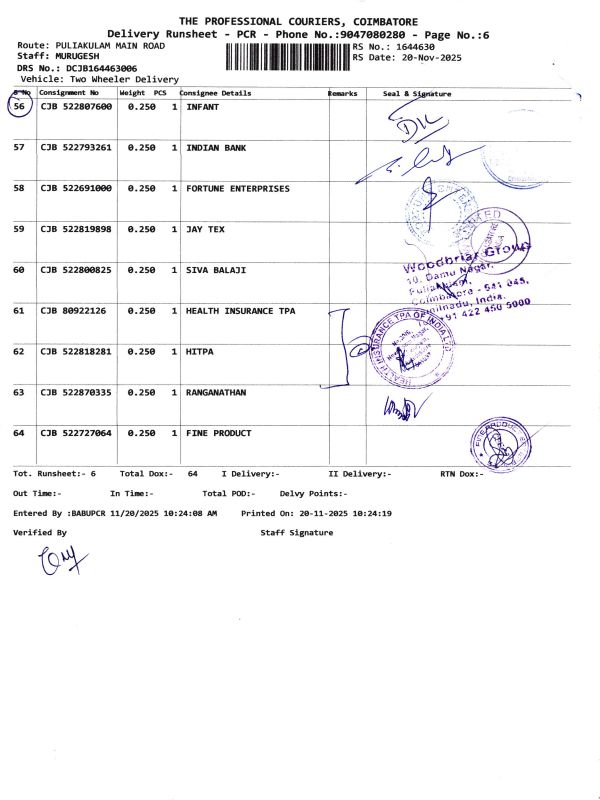 THE PROFESSIONAL COURIERS, COIMBATORE
Delivery Runsheet - PCR - Phone No.:9047080280 - Page No.:6
Route: PULIAKULAM MAIN ROAD RS No.: 1644630
Staff: MURUGESH RS Date: 20-Nov-2025
DRS No.: DCJB164463006
Vehicle: Two Wheeler Delivery
S No Consignment No Weight PCS Consignee Details Remarks Seal & Signature
56 CJB 522807600 0.250 1 INFANT
57 CJB 522793261 0.250 1 INDIAN BANK
58 CJB 522691000 0.250 1 FORTUNE ENTERPRISES
59 CJB 522819898 0.250 1 JAY TEX
Woodbriar Group
10, Damu Nagar,
Puliakulam,
Coimbatore - 641 045,
Tamilnadu, India.
+91 422 450 5000
60 CJB 522800825 0.250 1 SIVA BALAJI
61 CJB 80922126 0.250 1 HEALTH INSURANCE TPA
HEALTH INSURANCE TPA OF INDIA LTD
62 CJB 522818281 0.250 1 HITPA
63 CJB 522870335 0.250 1 RANGANATHAN
64 CJB 522727064 0.250 1 FINE PRODUCT
Tot. Runsheet:- 6 Total Dox:- 64 I Delivery:- II Delivery:- RTN Dox:-
Out Time:- In Time:- Total POD:- Delvy Points:-
Entered By :BABUPCR 11/20/2025 10:24:08 AM Printed On: 20-11-2025 10:24:19
Verified By Staff Signature